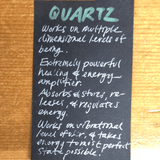 QUARTZ
Works on multiple
dimensional levels of
being.
Extremely powerful
healing & energy
amplifier.
Absorbs, stores, re-
leases, & regulates
energy.
Works on vibrational
level of user, & takes
energy to most perfect
state possible.